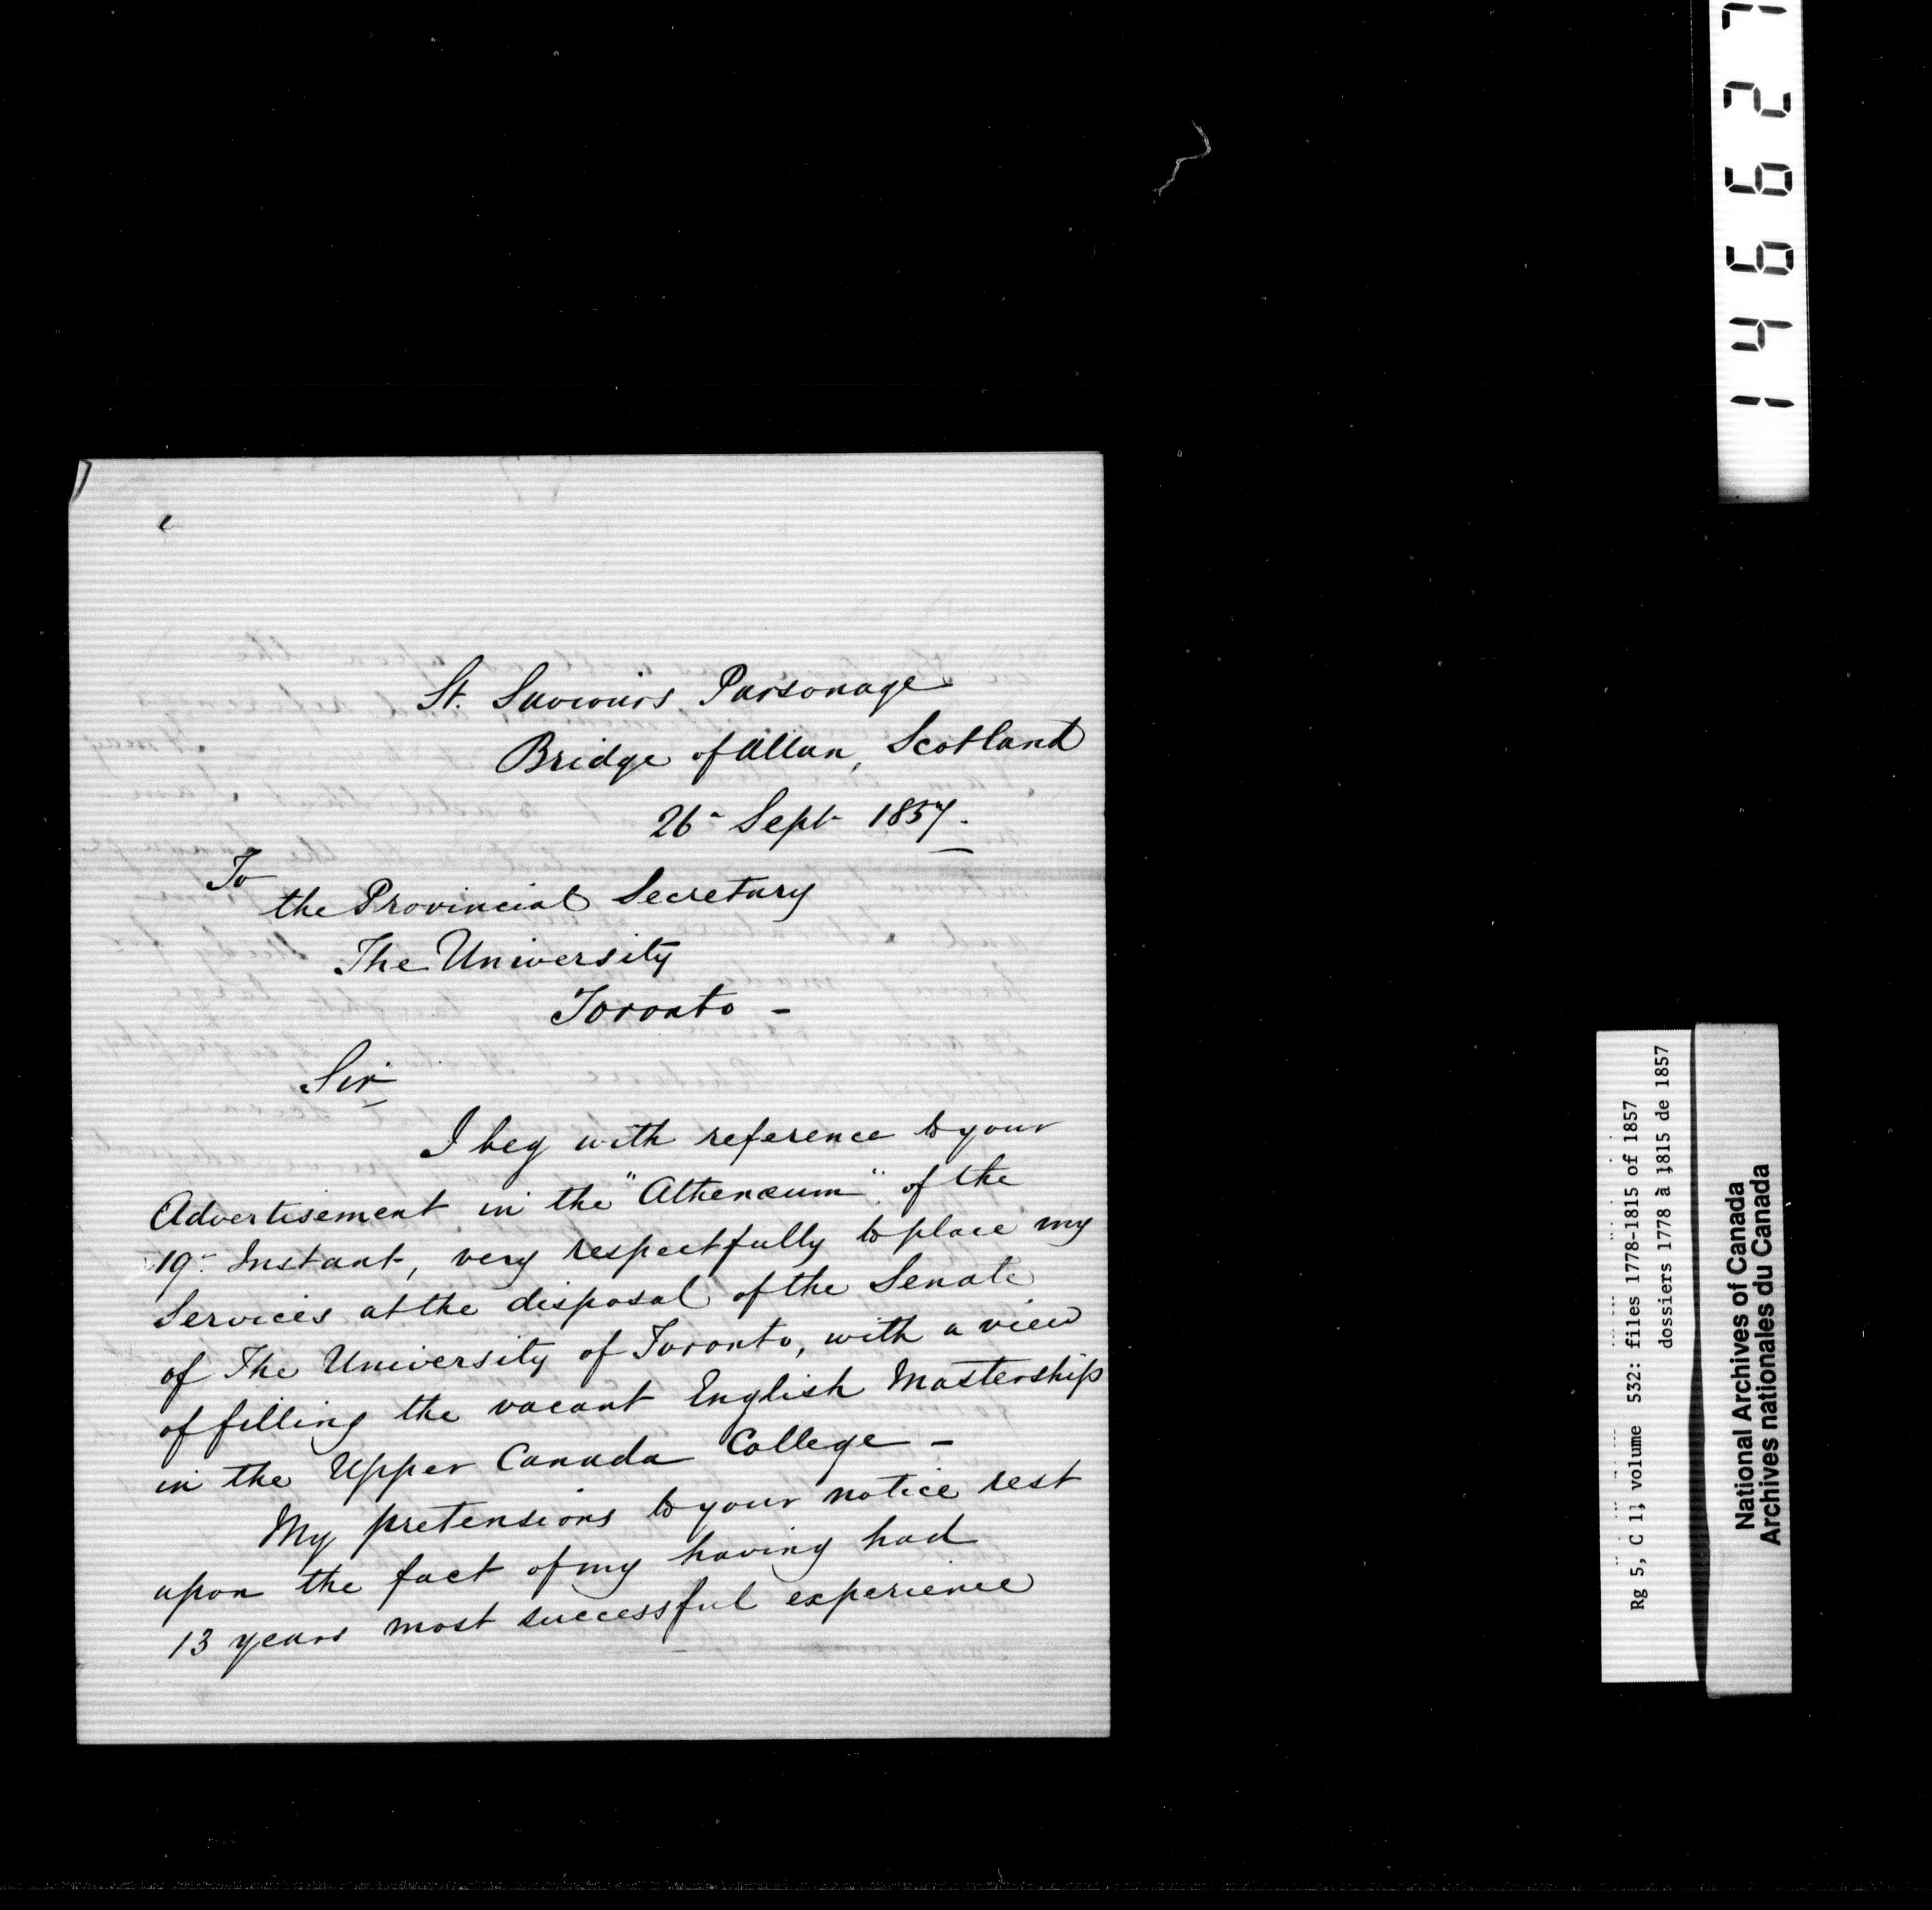 St. Saviours Parsonage
Bridge of Allan, Scotland
26- Sept 1857.
To
the Provincial Secretary
The University
Toronto -
Sir
I beg with reference to your
Advertisement in the "Athenæum" of the
19- Instant, very respectfully to place my
Services at the disposal of the Senate
of The University of Toronto, with a view
of filling the vacant English Mastership
in the Upper Canada College -
My pretensions to your notice rest
upon the fact of my having had
13 years most successful experience
146627
Rg 5, C 1, volume 532: files 1778-1815 of 1857
dossiers 1778 à 1815 de 1857
National Archives of Canada
Archives nationales du Canada